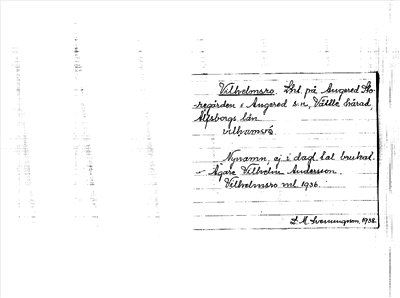 Vilhelmsro. Lht. på Angered Sto-
regården i Angered s:n, Vättle härad,
Älfsborgs län
vilhamsró.
Nynamn, ej i dagl. tal brukat.
Ägare Vilhelm Andersson.
Vilhelmsro ml 1936.
D. M. Svenungsson, 1938.